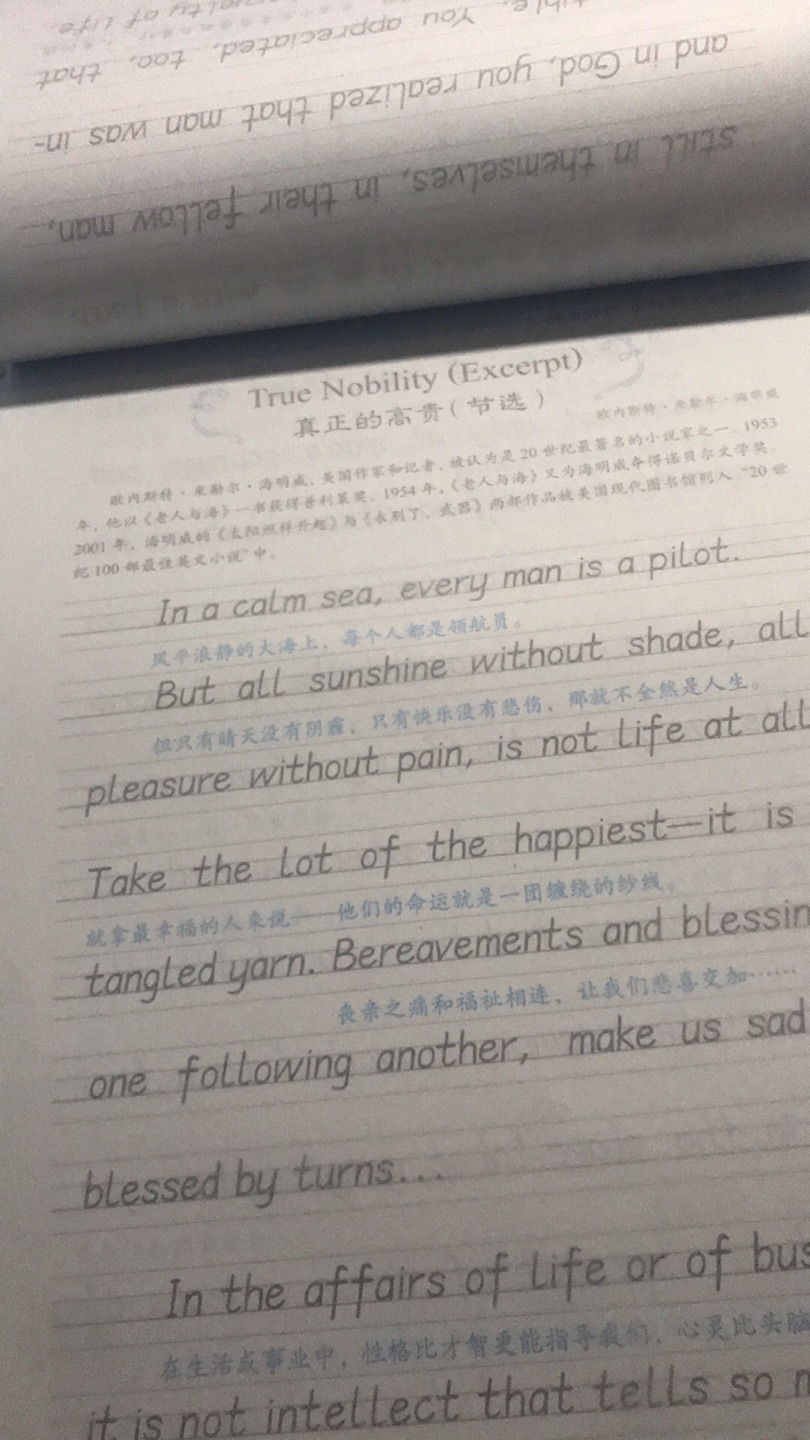 still in themselves, in their fellow man,
and in God, you realized that man was in-
You appreciated, too, that
of life
True Nobility (Excerpt)
真正的高贵(节选)
欧内斯特·米勒尔·海明威
欧内斯特·米勒尔·海明威,美国作家和记者,被认为是20世纪最著名的小说家之一。1953
年,他以《老人与海》一书获得普利策奖。1954年,《老人与海》又为海明威夺得诺贝尔文学奖。
2001年,海明威的《太阳照样升起》与《永别了,武器》两部作品被美国现代图书馆列入“20世
纪100部最佳英文小说”中。
In a calm sea, every man is a pilot.
风平浪静的大海上,每个人都是领航员。
But all sunshine without shade, all
但只有晴天没有阴霾,只有快乐没有悲伤,那就不全然是人生。
pleasure without pain, is not life at all
Take the lot of the happiest—it is
就拿最幸福的人来说——他们的命运就是一团缠绕的纱线。
tangled yarn. Bereavements and blessin
丧亲之痛和福祉相连,让我们悲喜交加……
one following another, make us sad
blessed by turns...
In the affairs of life or of bus
在生活或事业中,性格比才智更能指导我们,心灵比头脑
it is not intellect that tells so m